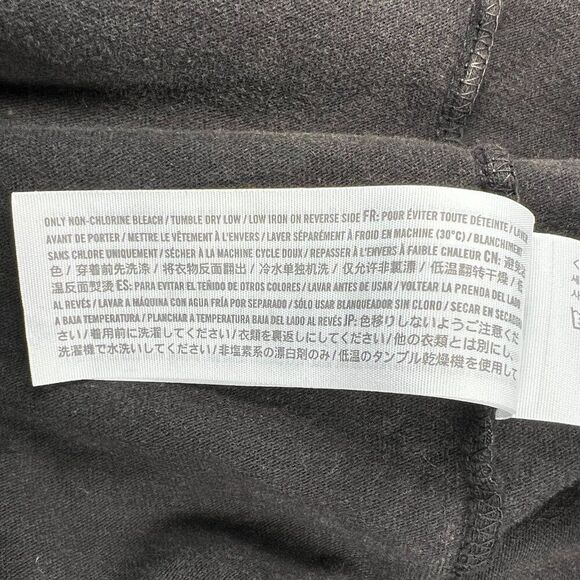 ONLY NON-CHLORINE BLEACH / TUMBLE DRY LOW / LOW IRON ON REVERSE SIDE FR: POUR ÉVITER TOUTE DÉTEINTE / LAVER
AVANT DE PORTER / METTRE LE VÊTEMENT À L'ENVERS / LAVER SÉPARÉMENT À FROID EN MACHINE (30°C) / BLANCHIMENT
SANS CHLORE UNIQUEMENT / SÉCHER À LA MACHINE CYCLE DOUX / REPASSER À L'ENVERS À FAIBLE CHALEUR CN: 避免染
色 / 穿着前先洗涤 / 将衣物反面翻出 / 冷水单独机洗 / 仅允许非氯漂 / 低温翻转干燥 / 低
温反面熨烫 ES: PARA EVITAR EL TEÑIDO DE OTROS COLORES / LAVAR ANTES DE USAR / VOLTEAR LA PRENDA DEL LADO
AL REVÉS / LAVAR A MÁQUINA CON AGUA FRÍA POR SEPARADO / SÓLO USAR BLANQUEADOR SIN CLORO / SECAR EN SECADORA
A BAJA TEMPERATURA / PLANCHAR A TEMPERATURA BAJA DEL LADO AL REVÉS JP: 色移りしないようご注意くだ
さい / 着用前に洗濯してください / 衣類を裏返しにしてください / 他の衣類とは別にし、
洗濯機で水洗いしてください / 非塩素系の漂白剤のみ / 低温のタンブル乾燥機を使用して